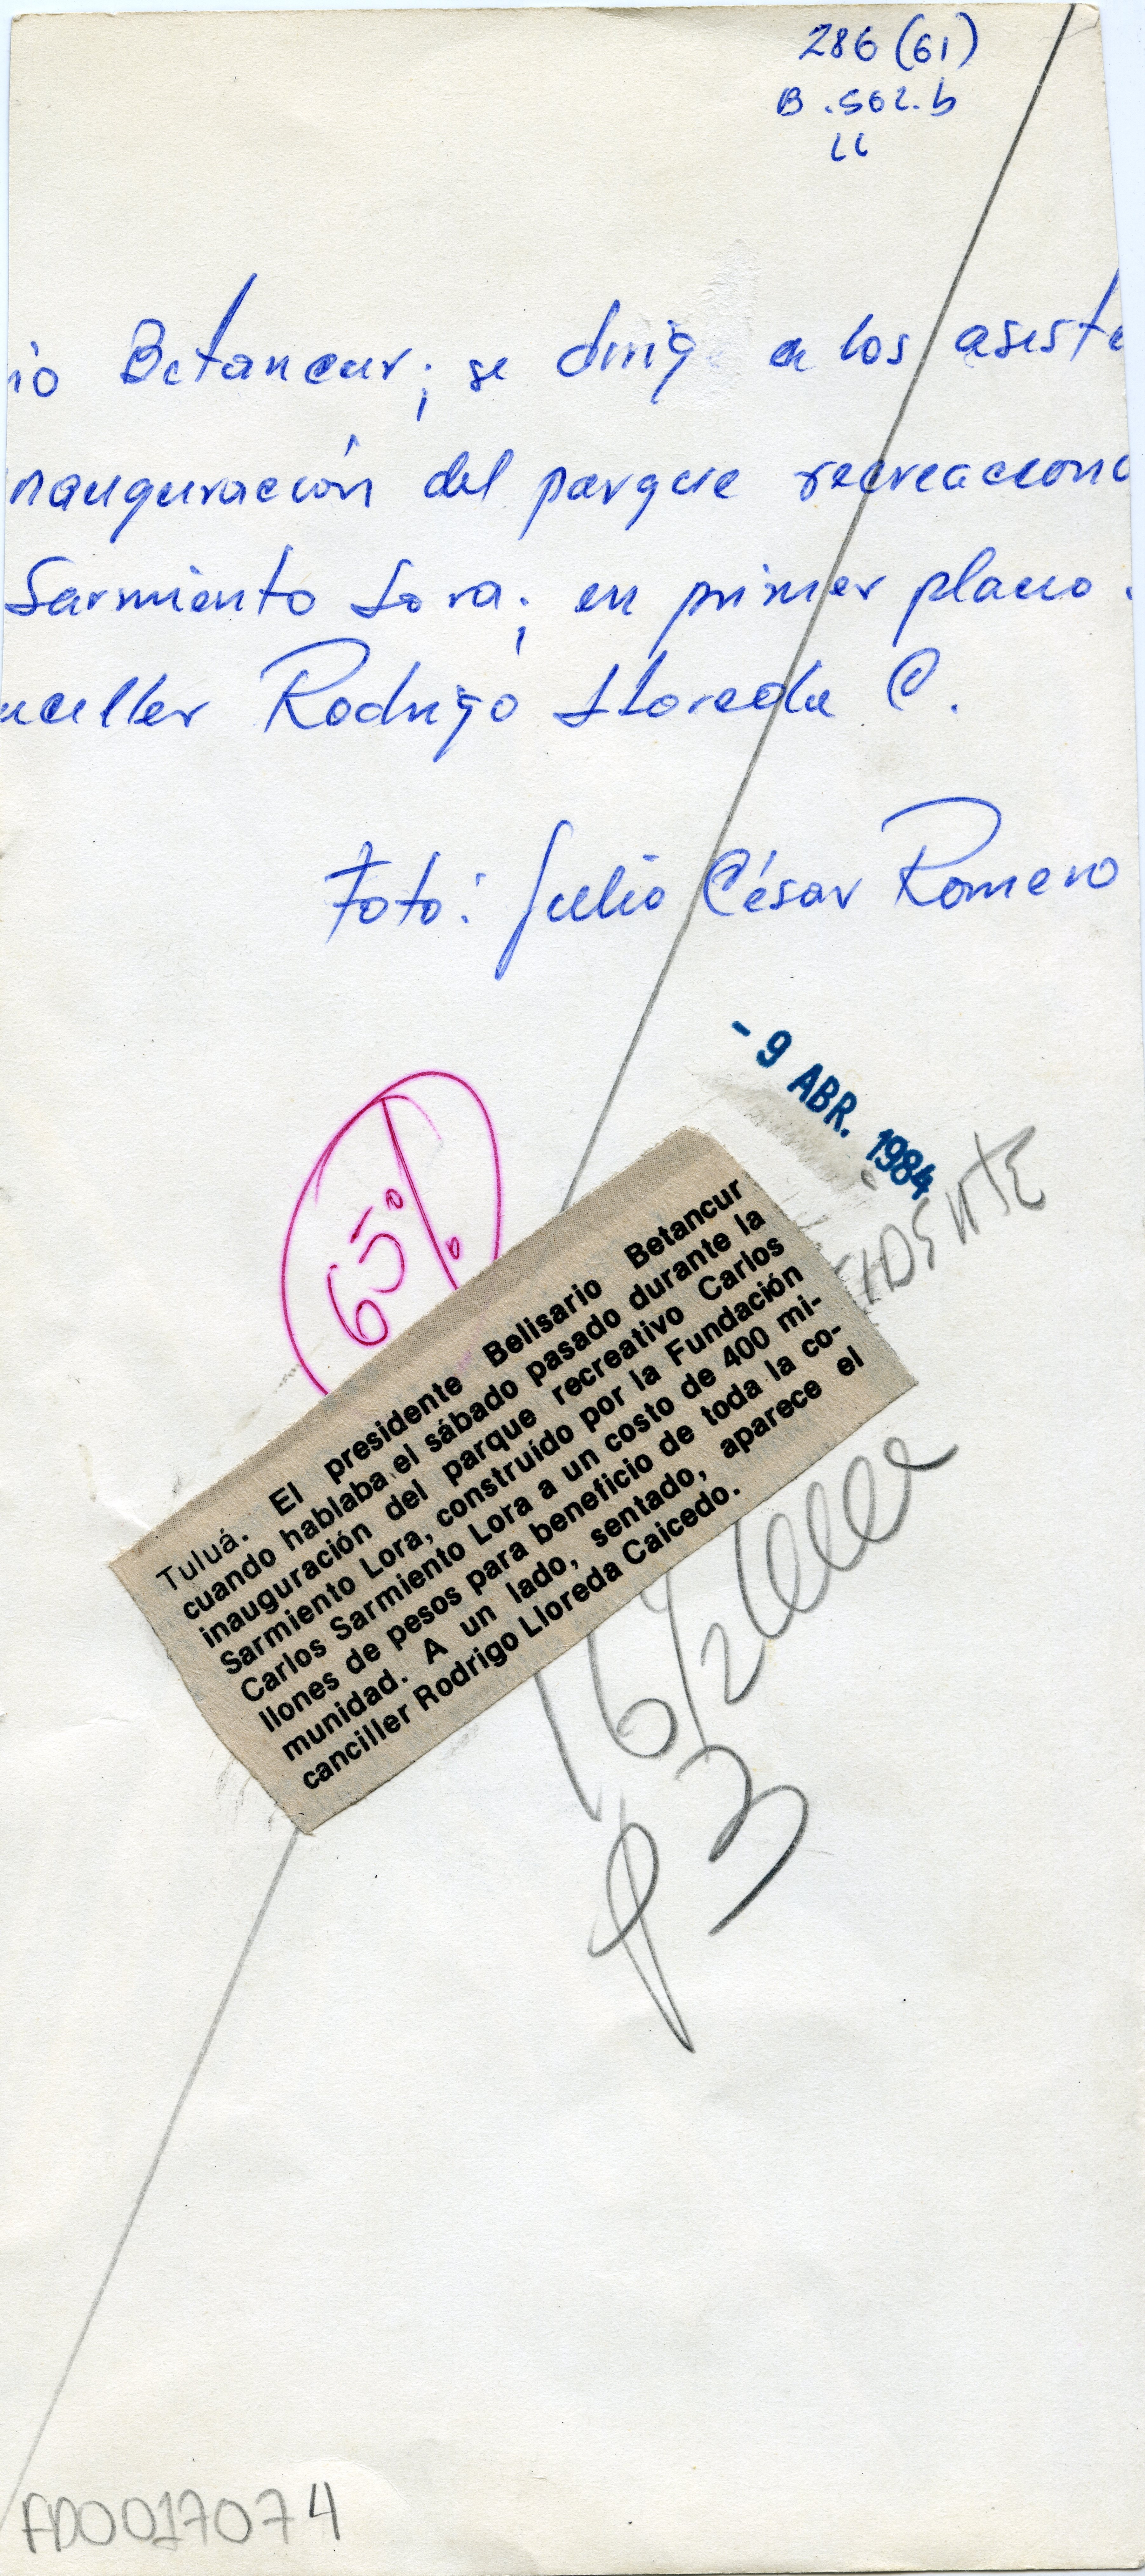 286 (61)
B.502.b
LL
io Betancur; se dirig a los asiste
nauguración del parque recreaciona
Sarmiento Lora; en primer plano
nciller Rodrigo Lloreda C.
Foto: Julio César Romero
- 9 ABR. 1984
65%
Tuluá. El presidente Belisario Betancur
cuando hablaba el sábado pasado durante la
inauguración del parque recreativo Carlos
Sarmiento Lora, construido por la Fundación
Carlos Sarmiento Lora a un costo de 400 mi-
llones de pesos para beneficio de toda la co-
munidad. A un lado, sentado, aparece el
canciller Rodrigo Lloreda Caicedo.
16/2
P3
FD0017074